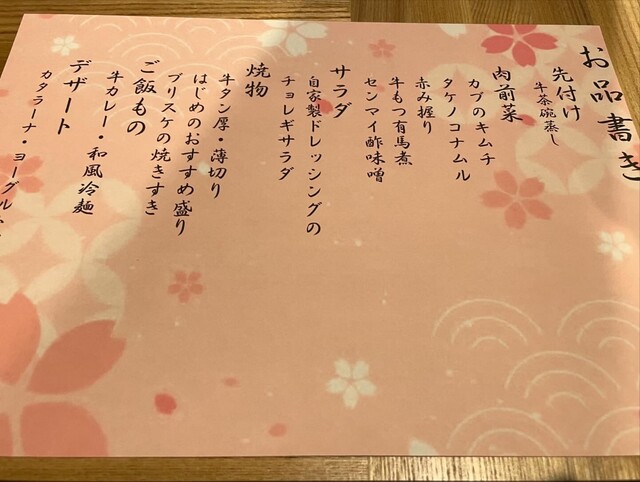 お品書き
先付け
牛茶碗蒸し
肉前菜
カブのキムチ
タケノコナムル
赤み握り
牛もつ有馬煮
センマイ酢味噌
サラダ
自家製ドレッシングの
チョレギサラダ
焼物
牛タン厚・薄切り
はじめのおすすめ盛り
ブリスケの焼きすき
ご飯もの
牛カレー・和風冷麺
デザート
カタラーナ・ヨーグル